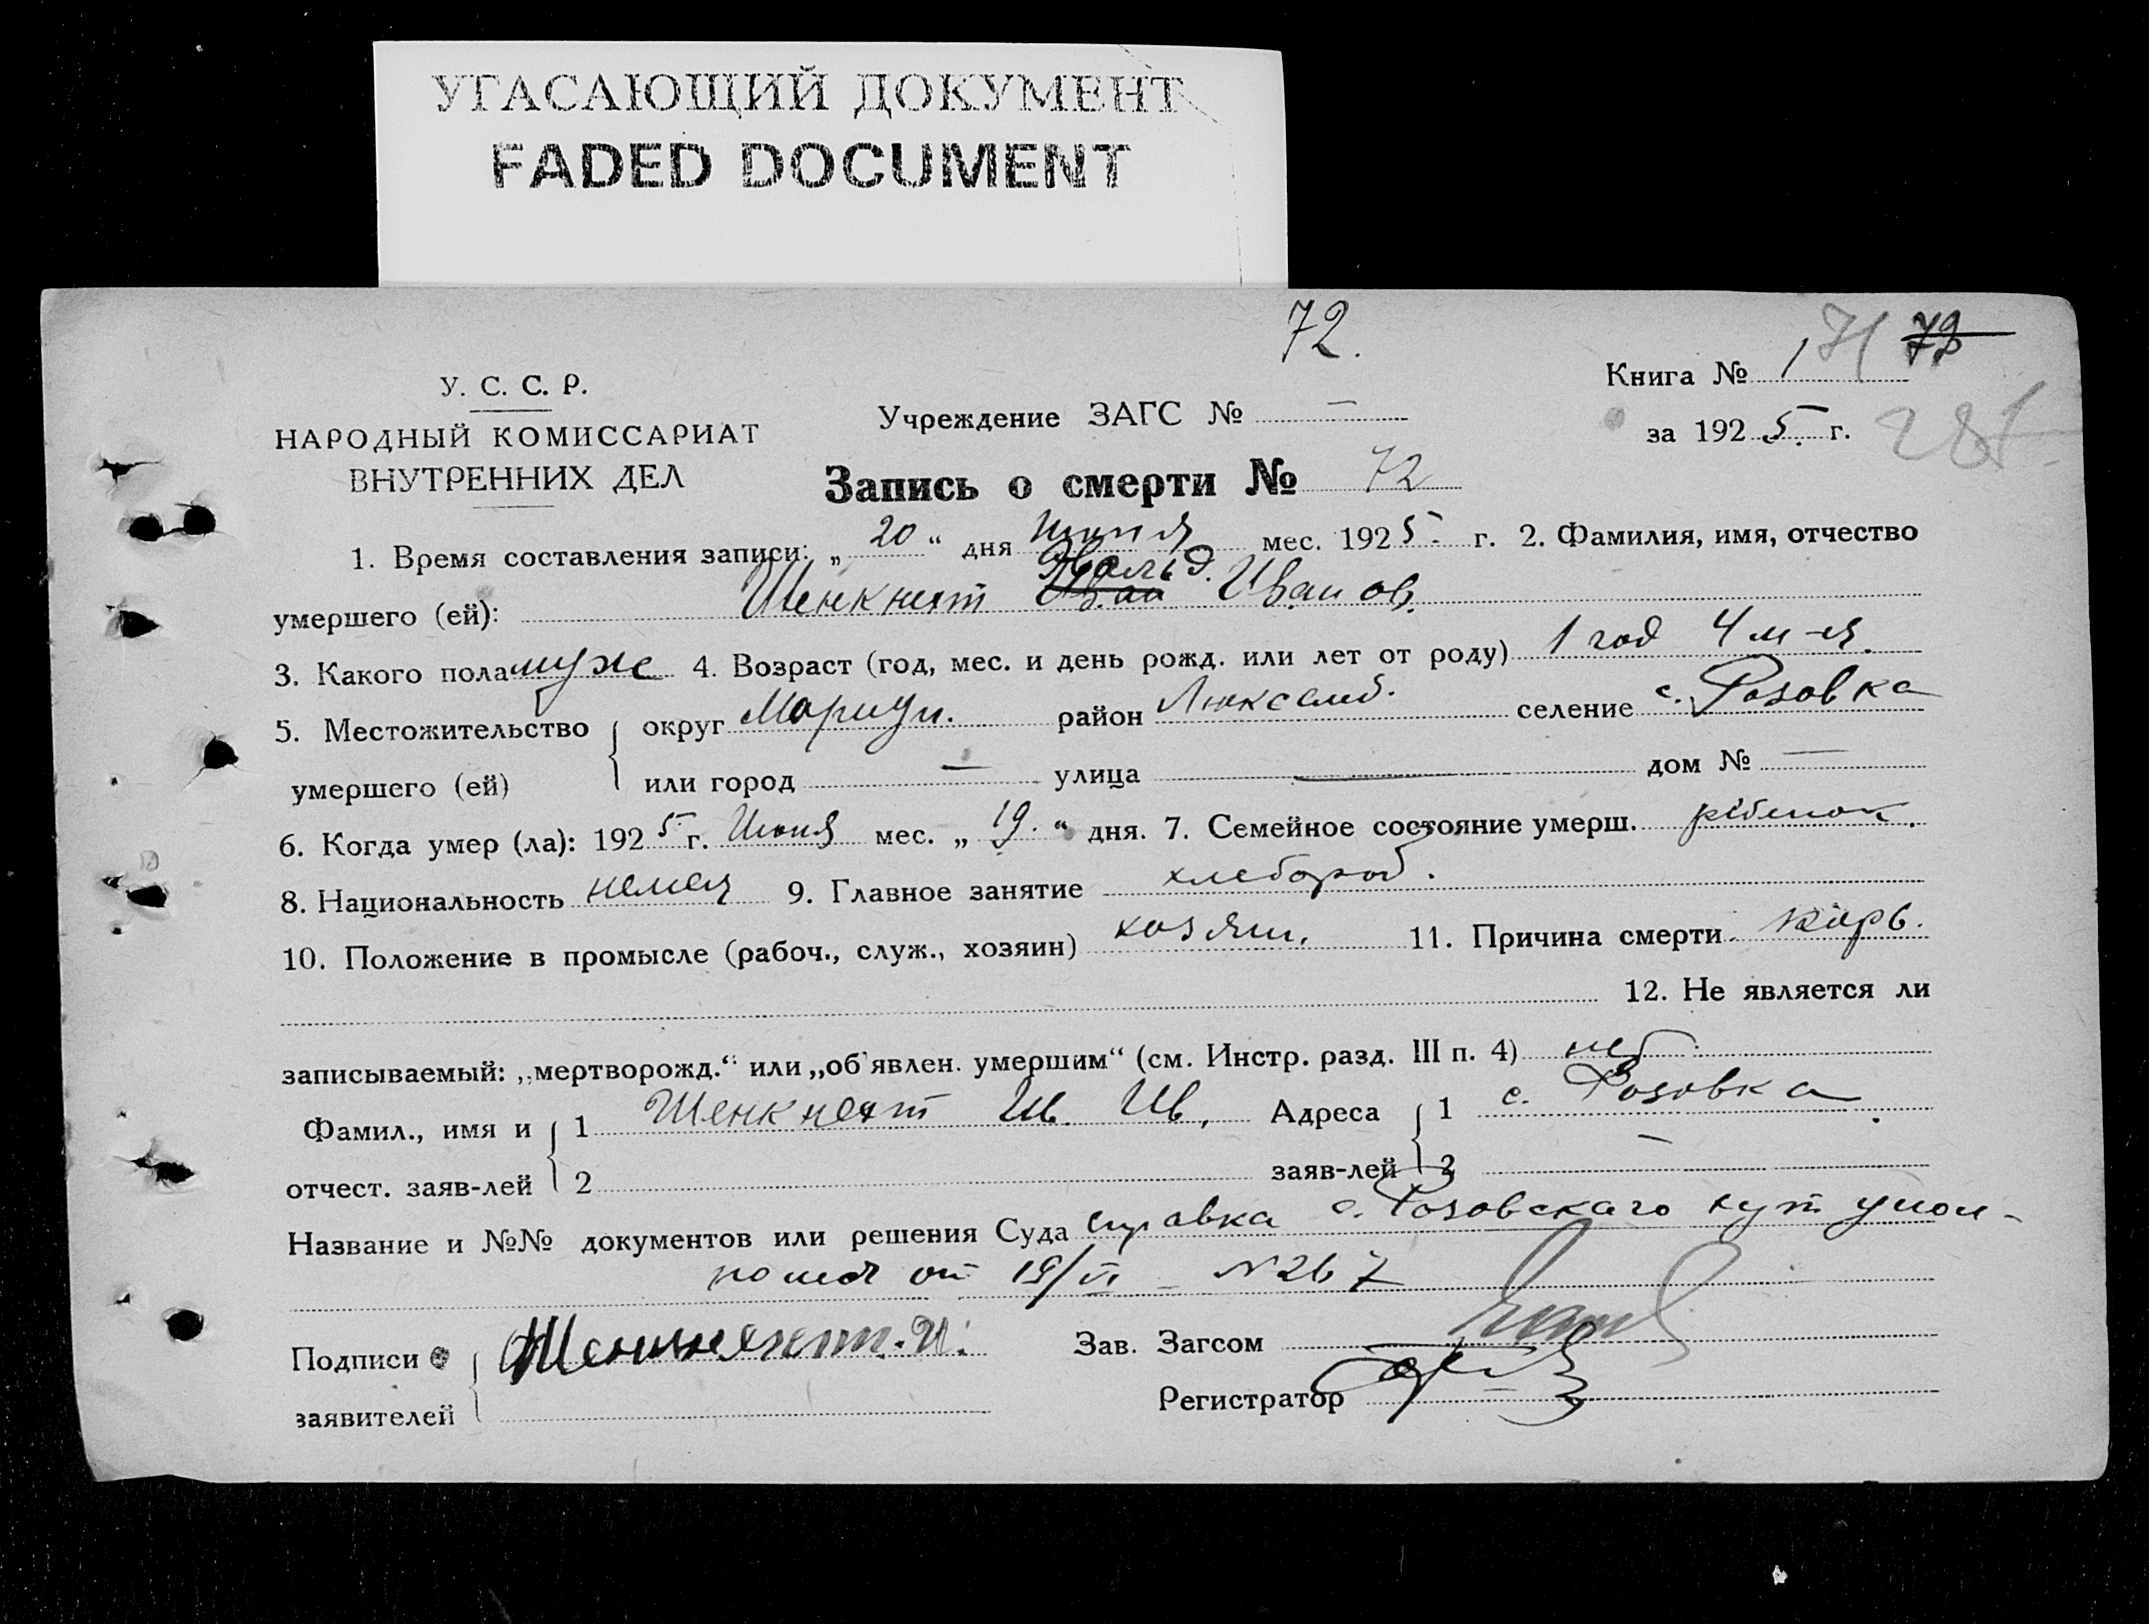 УГАСАЮЩИЙ ДОКУМЕНТ
FADED DOCUMENT
72.
У. С. С. Р.
НАРОДНЫЙ КОМИССАРИАТ
ВНУТРЕННИХ ДЕЛ
Учреждение ЗАГС № —
Книга № 1 71 72
за 1925. г.
Запись о смерти № 72
1. Время составления записи: „20“ дня Июня мес. 1925. г. 2. Фамилия, имя, отчество
умершего (ей): Шенкнехт Иван Иванов.
3. Какого пола муж 4. Возраст (год, мес. и день рожд. или лет от роду) 1 год 4 м-я.
5. Местожительство округ Мариуп. район Люксемб. селение с. Розовка
умершего (ей) или город — улица — дом № —
6. Когда умер (ла): 1925 г. Июня мес. „19.“ дня. 7. Семейное состояние умерш. ребенок.
8. Национальность немец 9. Главное занятие хлебороб.
10. Положение в промысле (рабоч., служ., хозяин) хозяин. 11. Причина смерти. корь.
12. Не является ли
записываемый: „мертворожд.“ или „об'явлен. умершим“ (см. Инстр. разд. III п. 4) нет.
Фамил., имя и 1 Шенкнехт Ив. Ив. Адреса 1 с. Розовка.
отчест. заяв-лей 2 заяв-лей 2 —
Название и №№ документов или решения Суда справка с. Розовскаго упол-
от 19/VI — N 267
Подписи Шенкнехт. И.
заявителей
Зав. Загсом
Регистратор